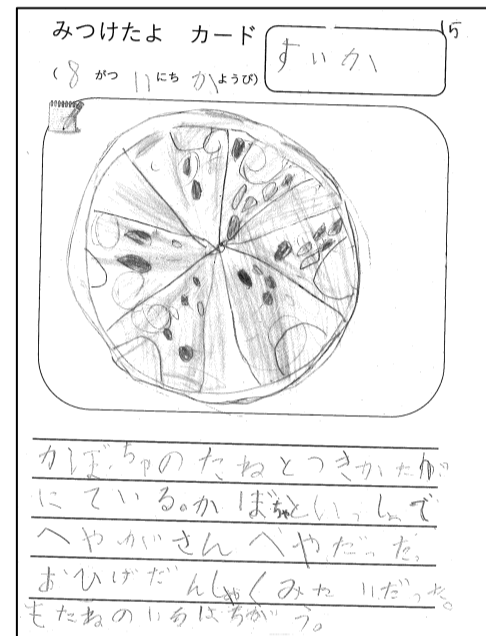 みつけたよ カード
15
すいか
(8 がつ 11 にち かようび)
かぼちゃのたねとつきかたが
にている。かぼちゃといっしょで
へやがさんべやだった。
おひげだんしゃくみたいだった。
もたねのいろはちがう。